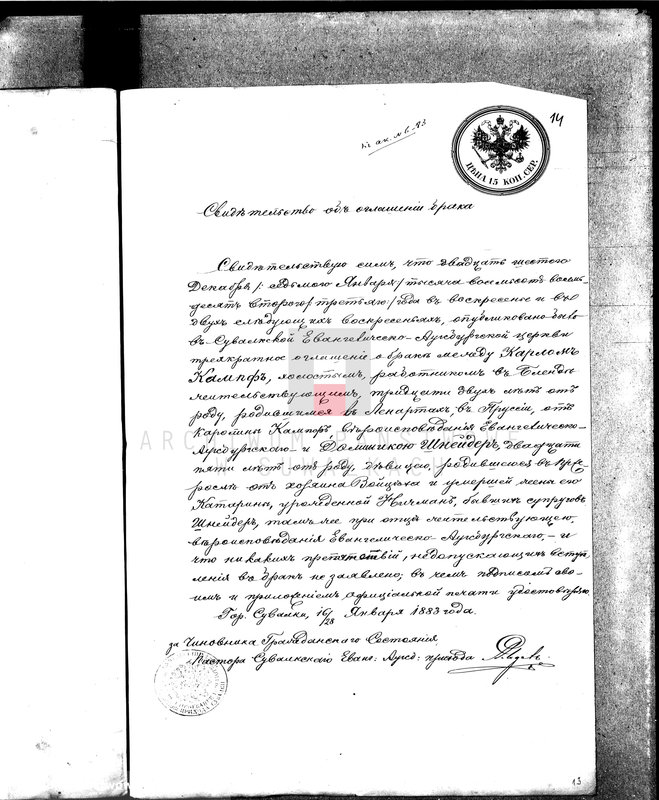 14
№ ак. м в. 83
ЦѢНА 15 КОП. СЕР.
Свидѣтельство объ оглашеніи брака
Свидѣтельствую симъ, что двадцать шестого
Декабря /: седьмого Января / тысяча восемьсотъ восемь-
десятъ второго / третьяго / года въ воскресенье и въ
двухъ слѣдующихъ воскресеньяхъ, опубликовано было
въ Сувалкской Евангелическо-Аугсбургской церкви
трехкратное оглашеніе о бракѣ между Карломъ
Кампфъ, холостымъ, работникомъ въ
жительствующимъ, тридцати двухъ лѣтъ отъ
роду, родившимся въ Ленартахъ въ Прусіи, отъ
Каролины Кампфъ вѣроисповѣданія Евангелическо-
Аугсбургскаго - и Доминикою Шнейдеръ, двадцати
пяти лѣтъ отъ роду, дѣвицею, родившеюся въ
отъ хозяина Войцѣха и умершей жены его
Катарины, урожденной Кичманъ, бывшихъ супруговъ
Шнейдеръ, тамъ же при отцѣ жительствующею,
вѣроисповѣданія Евангелическо-Аугсбургскаго, - и
что никакихъ препятствій, недопускающихъ вступ-
ленія въ бракъ не заявлено; въ чемъ подписомъ сво-
имъ и приложеніемъ офиціальной печати удостовѣряю.
Гор. Сувалки, 16/28 Января 1883 года.
за Чиновника Гражданскаго Состоянія,
Пастора Сувалкскаго Еванг: Аугсб: прихода
ARCHIWUM PAŃSTWOWE
SUWAŁKACH
13